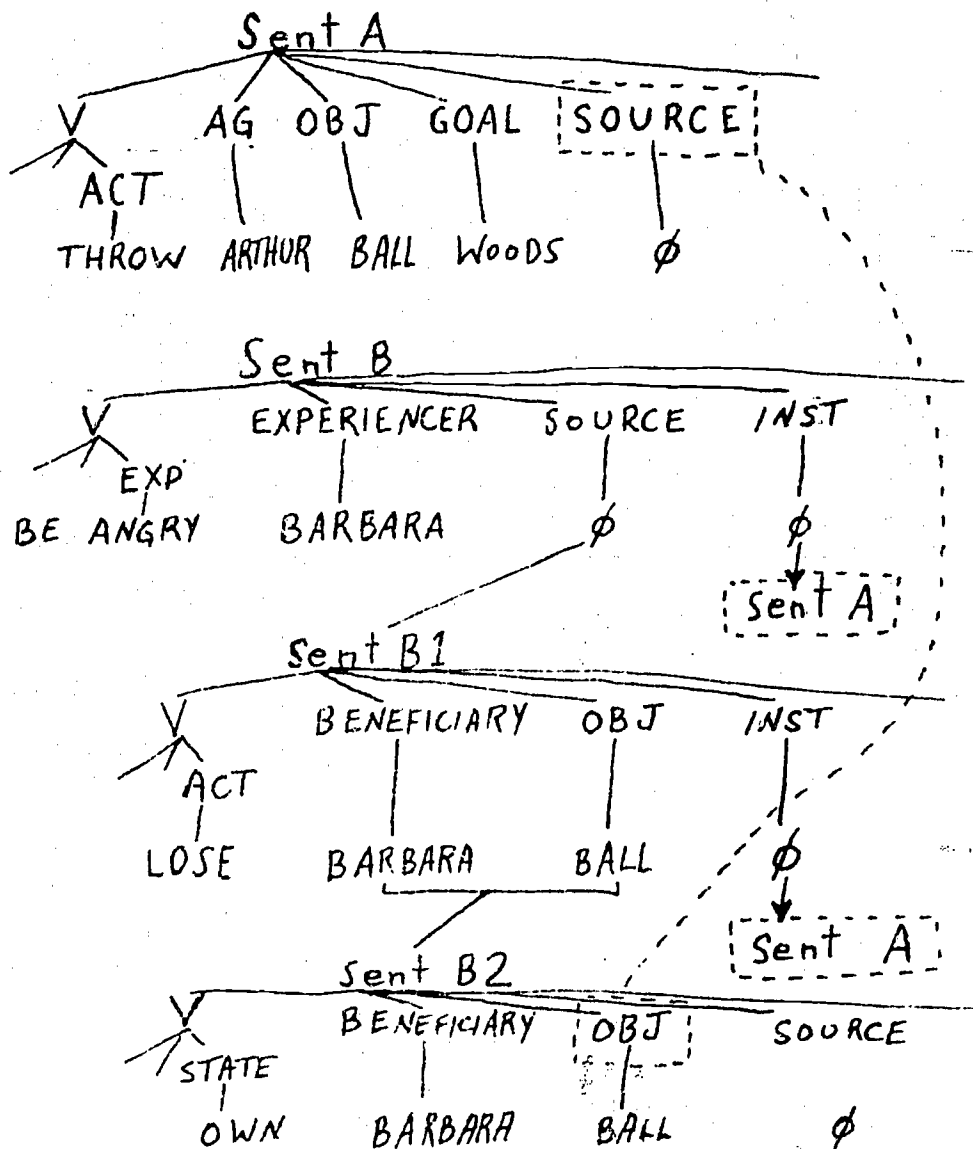 Sent A
V AG OBJ GOAL SOURCE
ACT
THROW ARTHUR BALL WOODS ø
Sent B
V EXPERIENCER SOURCE INST
EXP
BE ANGRY BARBARA ø ø
Sent A
Sent B1
V BENEFICIARY OBJ INST
ACT
LOSE BARBARA BALL ø
Sent A
Sent B2
V BENEFICIARY OBJ SOURCE
STATE
OWN BARBARA BALL ø